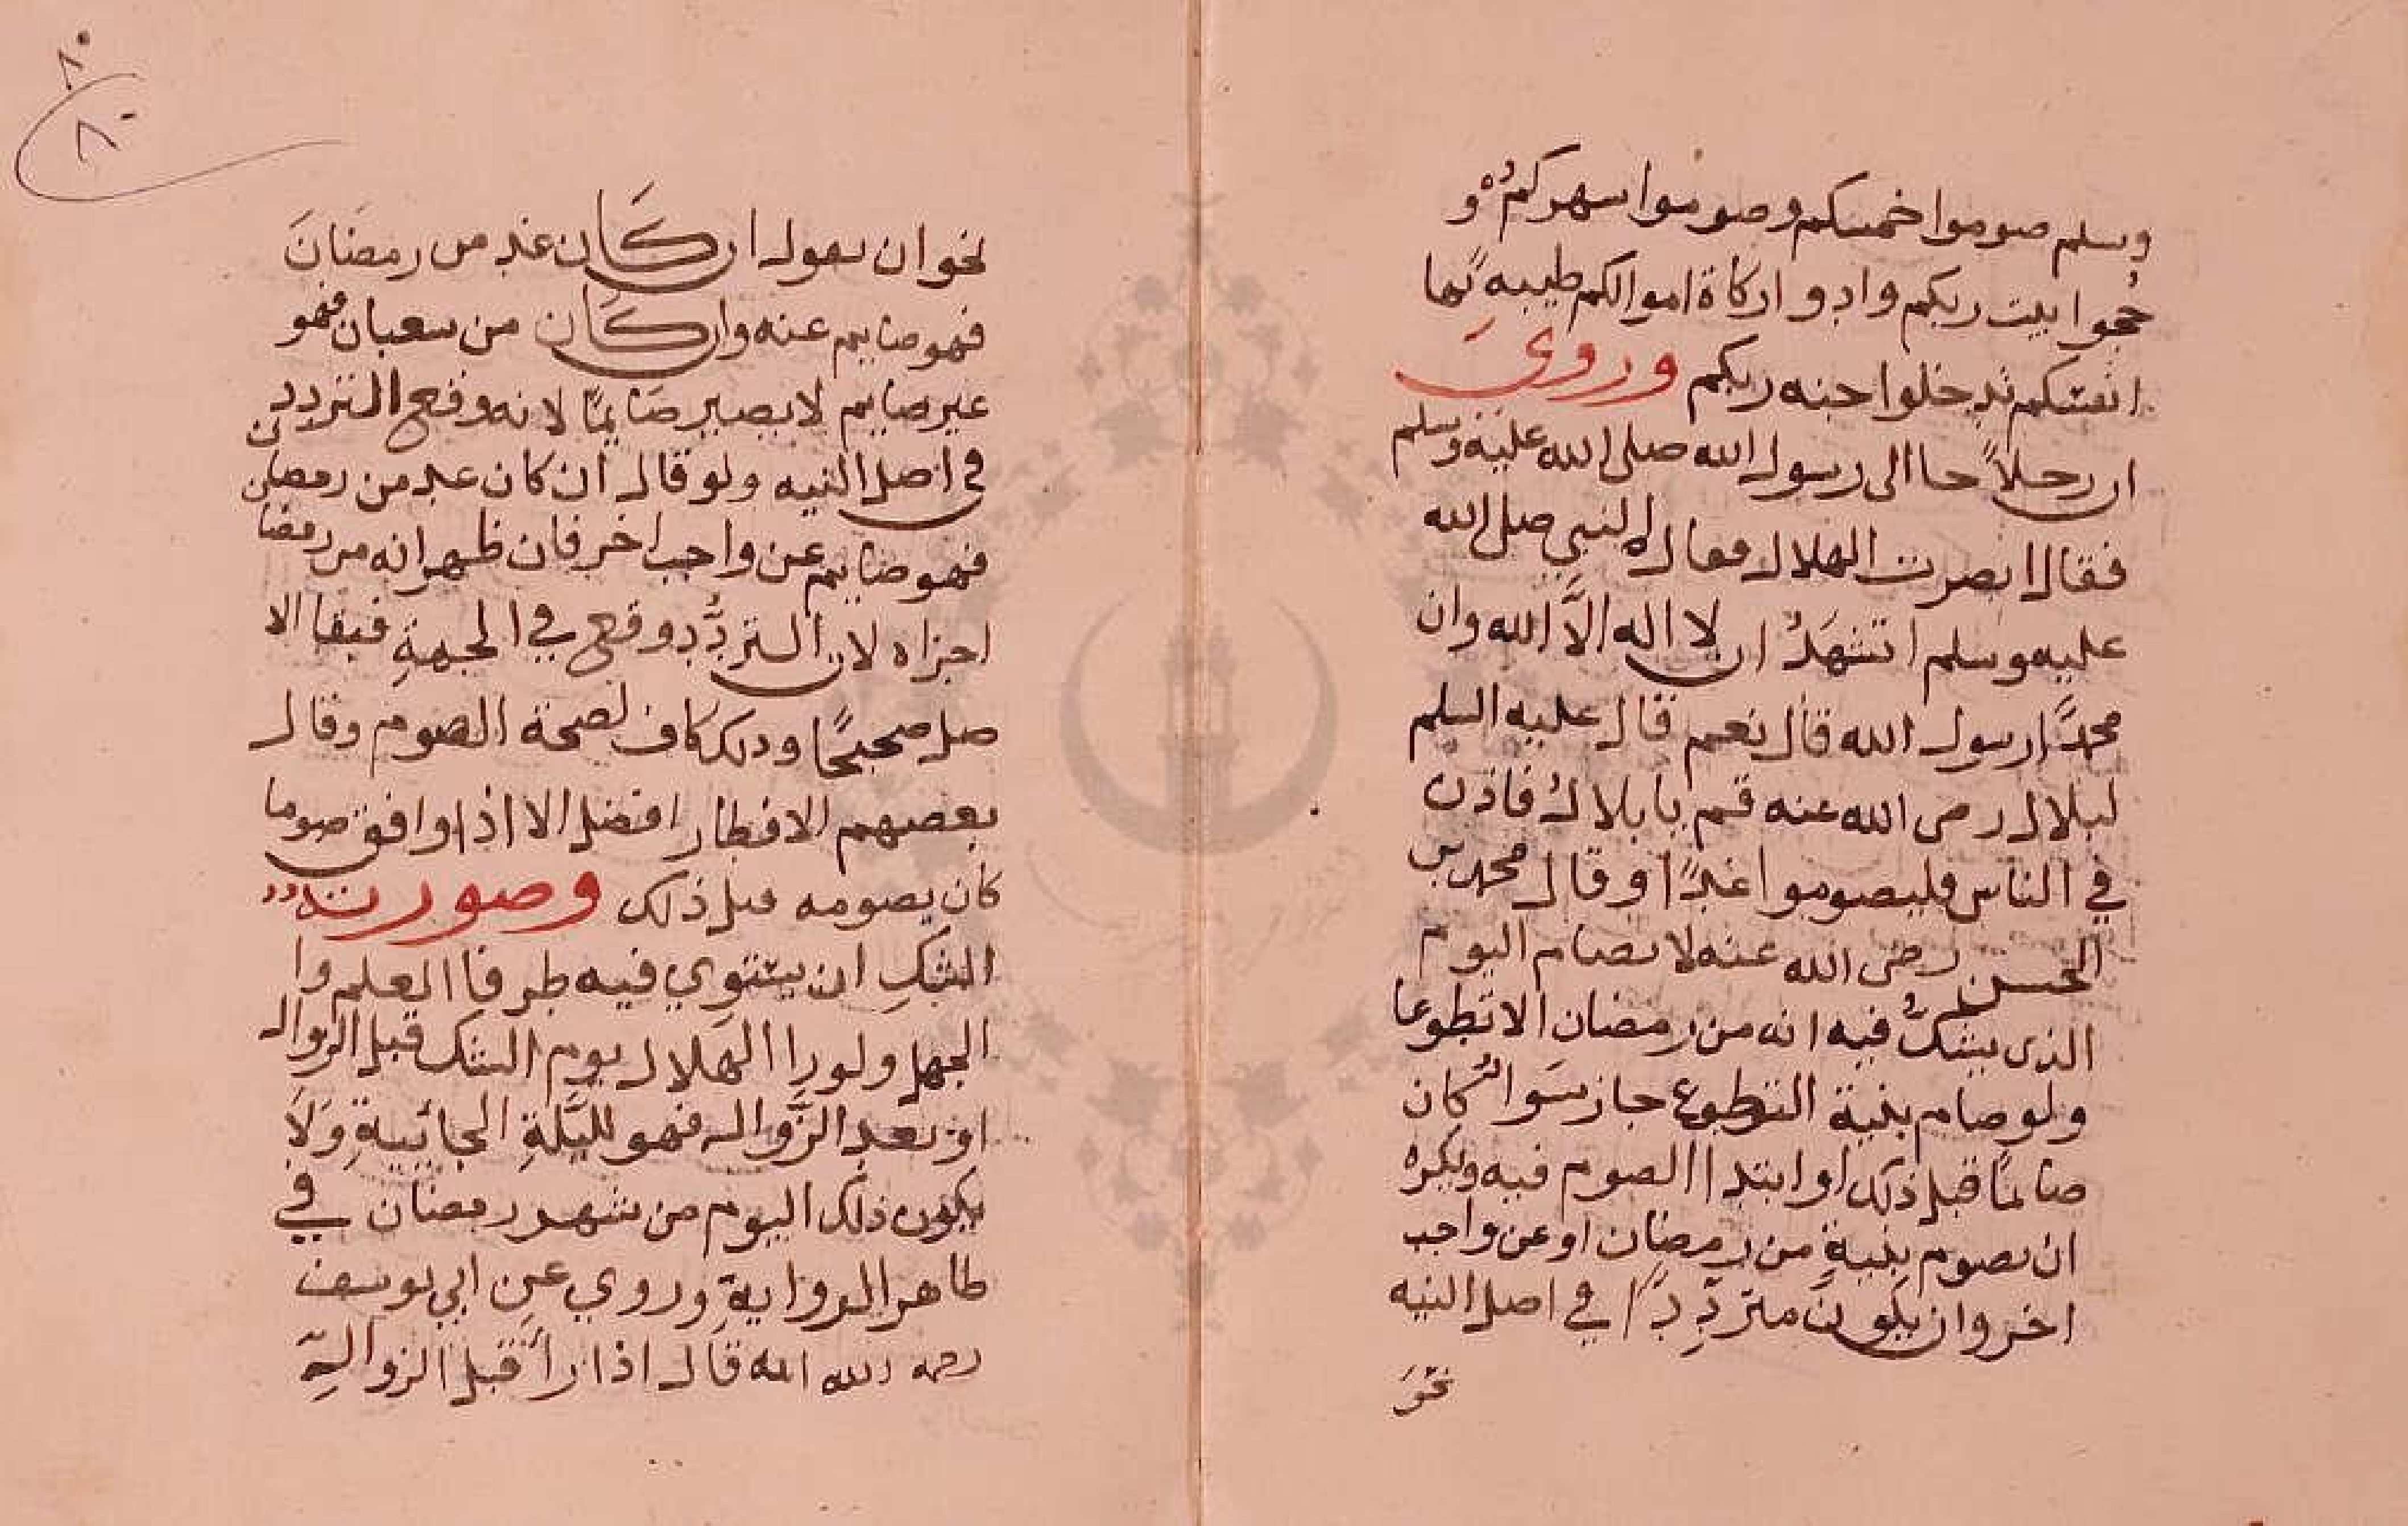 وسلم صوموا خمسكم وصوموا سهركم و
حجوا بيت ربكم وادوا زكاة اموالكم طيبه بها
انفسكم تدخلوا جنه ربكم وروي
ان رجلاً جا الى رسول الله صلى الله عليه وسلم
فقال ابصرت الهلال فقال له النبي صلى الله
عليه وسلم اتشهد ان لا اله الا الله وان
محمدًا رسول الله قال نعم قال عليه السلم
لبلال رضى الله عنه قم يا بلال فاذن
في الناس فليصوموا غدًا وقال محمد بن
الحسن رضى الله عنه لا يصام اليوم
الذى يشك فيه انه من رمضان الا تطوعا
ولو صام بنية التطوع جاز سوا كان
صائمًا قبل ذلك او ابتدا الصوم فيه ويكره
ان يصوم بنية من رمضان او عن واجب
اخر وان يكون مترددًا في اصل النيه
نحو
نحو ان يعول ان كان غد من رمضان
فهو صايم عنه وان كان من سعبان فهو
غير صايم لا يصير صايمًا لانه وقع التردد
في اصل النيه ولو قال ان كان غد من رمضان
فهو صايم عن واجب اخر فان ظهر انه من رمضا
اجزاه لان التردد وقع في الجهة فبقا الا
صل صحيحًا وذلك كاف لصحة الصوم وقال
بعضهم الافطار افضل الا اذا وافق صوما
كان يصومه قبل ذلك وصورته
الشك ان يستوي فيه طرفا العلم وا
الجهل ولو را الهلال يوم الشك قبل الزوال
او بعد الزوال فهو لليلة الجائية ولا
يكون ذلك اليوم من شهر رمضان في
ظاهر الرواية وروي عن ابي يوسف
رحمه الله انه قال اذا رأ قبل الزوال
٨٠
٨٠